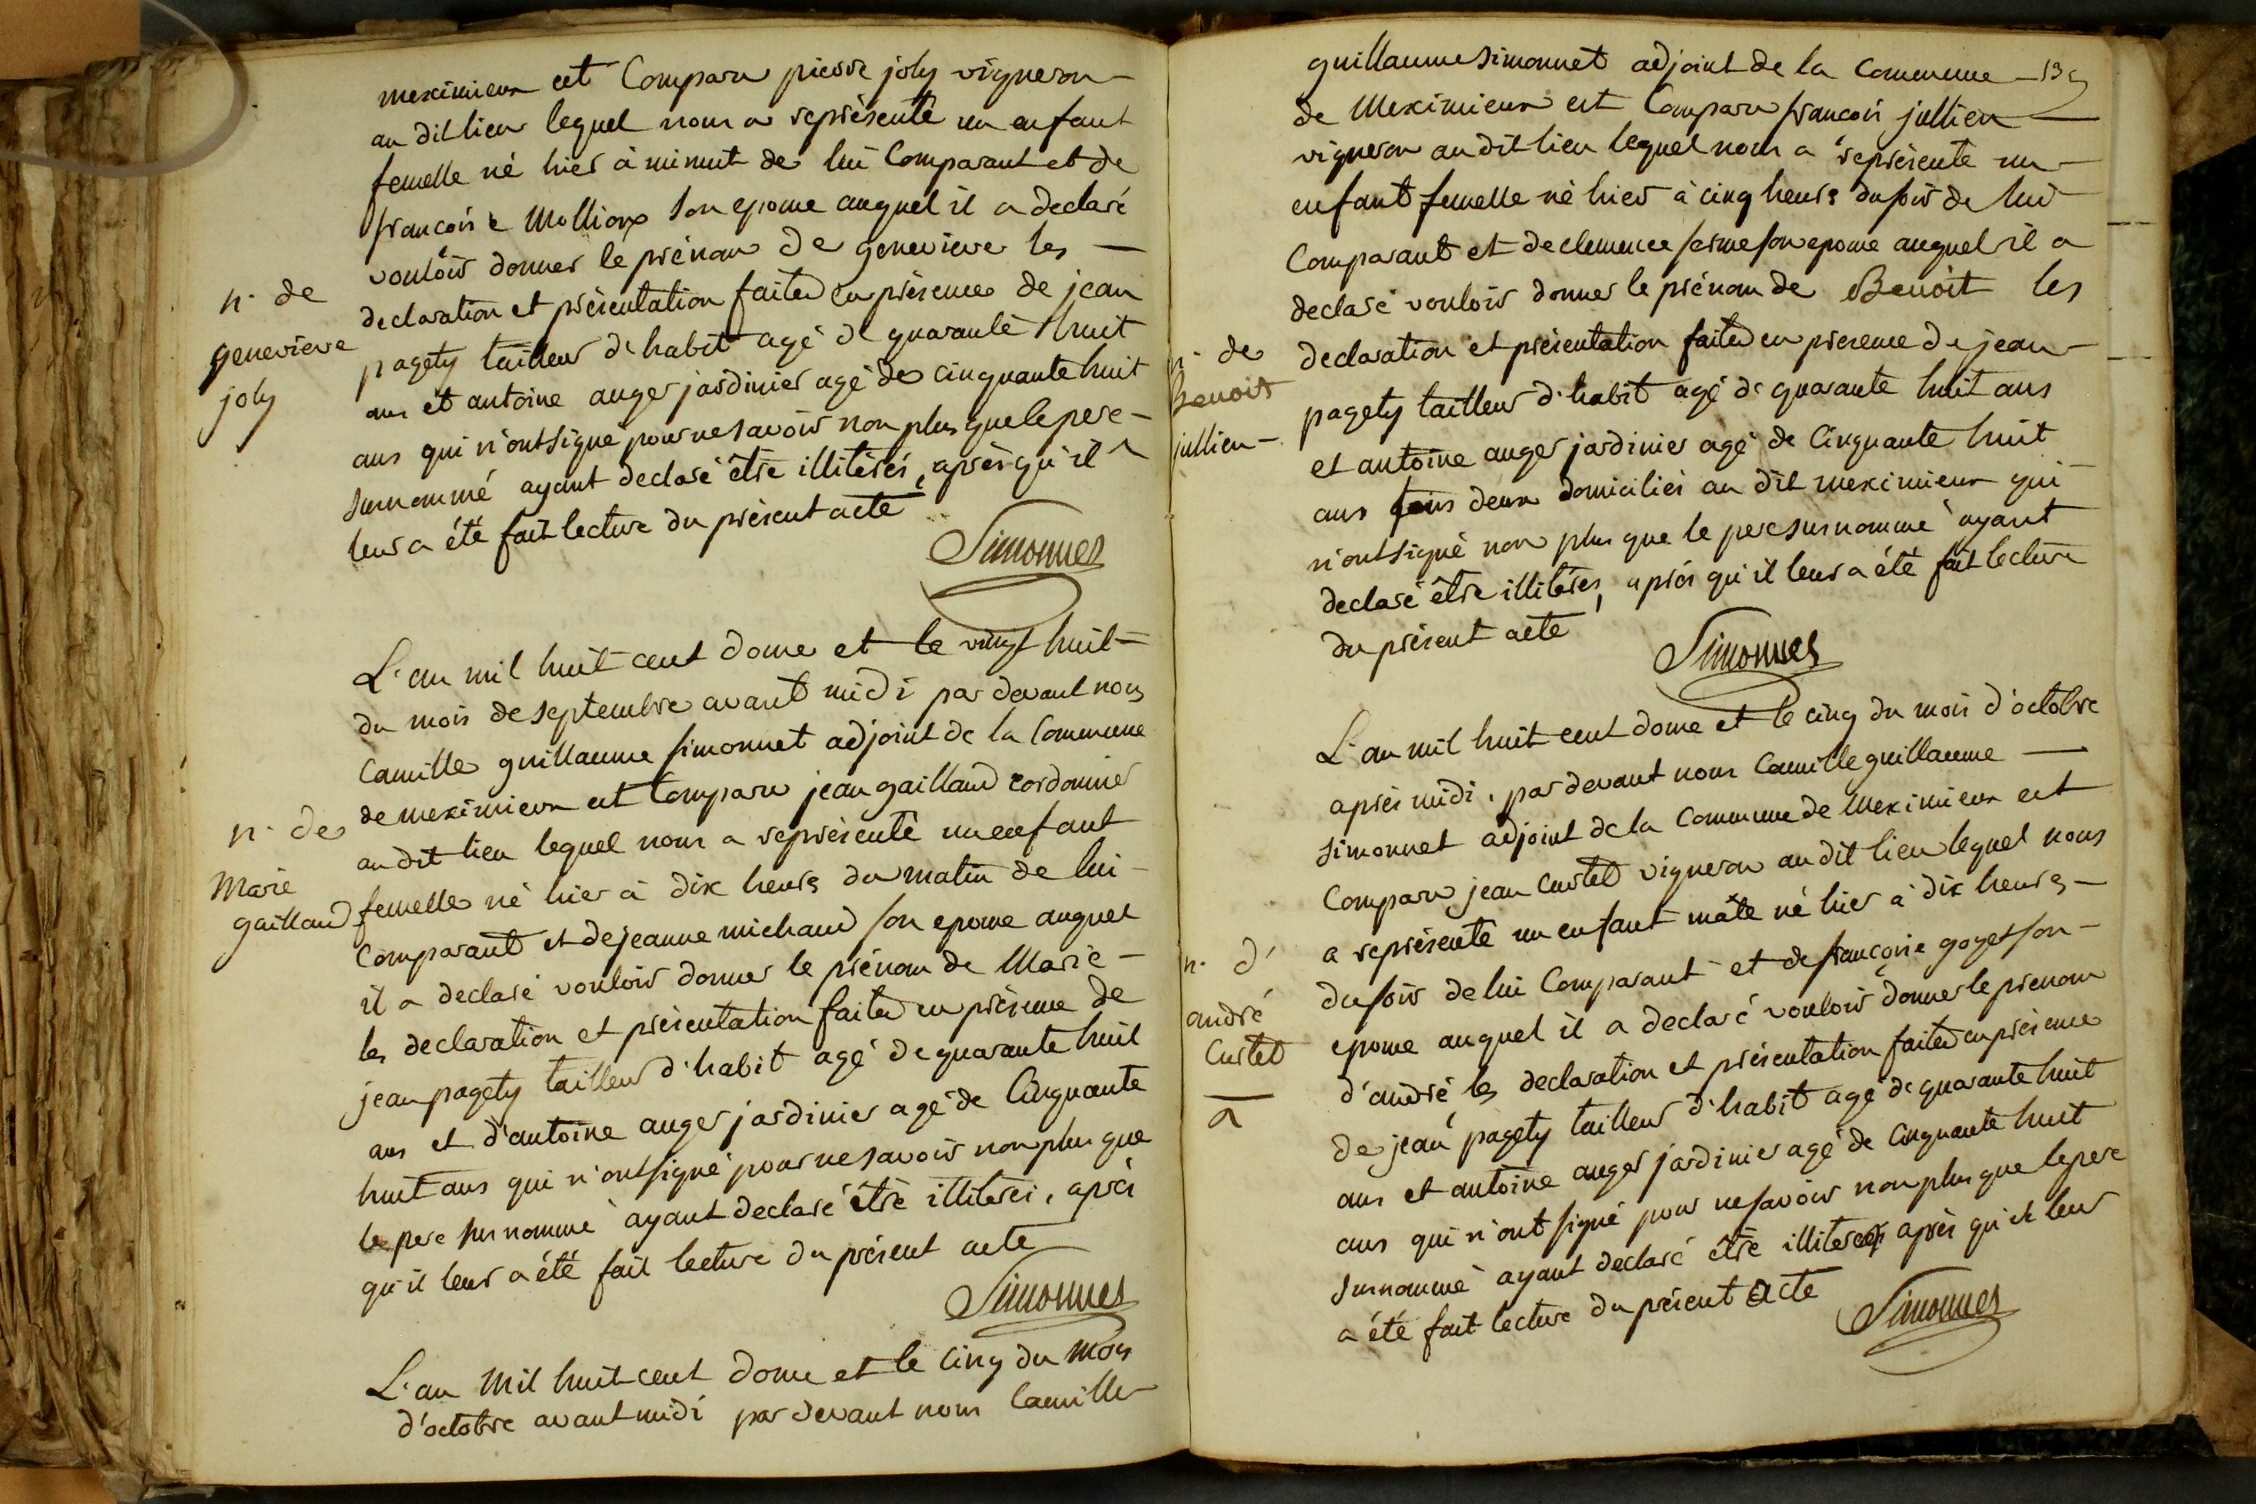 meximieux est Comparu pierre joly vigneron –
au dit lieu lequel nous a représenté un enfant
femelle né hier à minuit de lui Comparant et de
françoise Mollion son epouse auquel il a declaré
vouloir donner le prénom de genevieve les —
declaration et présentation faites en présence de jean
pagety tailleur d'habit agé de quarante huit
ans et antoine auger jardinier agé de cinquante huit
ans qui n'ont signé pour ne savoir non plus que le pere –
surnommé ayant declaré être illiterés, après qu'il
leur a été fait lecture du présent acte
Simonnet
n. de
genevieve
joly
L'an mil huit cent douze et le vingt huit –
du mois de septembre avant midi par devant nous
Camille guillaume simonnet adjoint de la Commune
de meximieux est Comparu jean gaillard cordonnier
au dit lieu lequel nous a représenté un enfant
femelle né hier à dix heures du matin de lui –
Comparant et de jeanne michaud son epouse auquel
il a declaré vouloir donner le prénom de Marie –
les declaration et présentation faites en présence de
jean pagety tailleur d'habit agé de quarante huit
ans et d'antoine auger jardinier agé de Cinquante
huit ans qui n'ont signé pour ne savoir non plus que
le pere surnommé ayant declaré être illiterés, après
qu'il leur a été fait lecture du présent acte
Simonnet
n. de
Marie
gaillard
L'an Mil huit cent douze et le Cinq du Mois
d'octobre avant midi par devant nous Camille
guillaume simonnet adjoint de la Commune —
de Meximieux est Comparu françois jullien —
vigneron au dit lieu lequel nous a représenté un –
enfant femelle né hier à cinq heures du soir de lui
Comparant et de clemence ferme son epouse auquel il a
declaré vouloir donner le prénom de Benoit les
declaration et présentation faites en présence de jean –
pagety tailleur d'habit agé de quarante huit ans
et antoine auger jardinier agé de Cinquante huit
ans tous deux domiciliés au dit meximieux qui –
n'ont signé non plus que le pere surnommé ayant
declaré être illiterés, après qu'il leur a été fait lecture
du présent acte
Simonnet
n. de
Benoit
jullien –
L'an mil huit cent douze et le cinq du mois d'octobre
après midi, par devant nous Camille guillaume —
simonnet adjoint de la Commune de Meximieux est
Comparu jean Curtet vigneron au dit lieu lequel nous
a représenté un enfant mâle né hier à dix heures –
du soir de lui Comparant et de françoise goyet son –
epouse auquel il a declaré vouloir donner le prenom
d'andré les declaration et présentation faites en présence
de jean pagety tailleur d'habit agé de quarante huit
ans et antoine auger jardinier agé de Cinquante huit
ans qui n'ont signé pour ne savoir non plus que le pere
surnommé ayant declaré être illiterés après qu'il leur
a été fait lecture du présent acte
Simonnet
n. d'
andré
Curtet
a